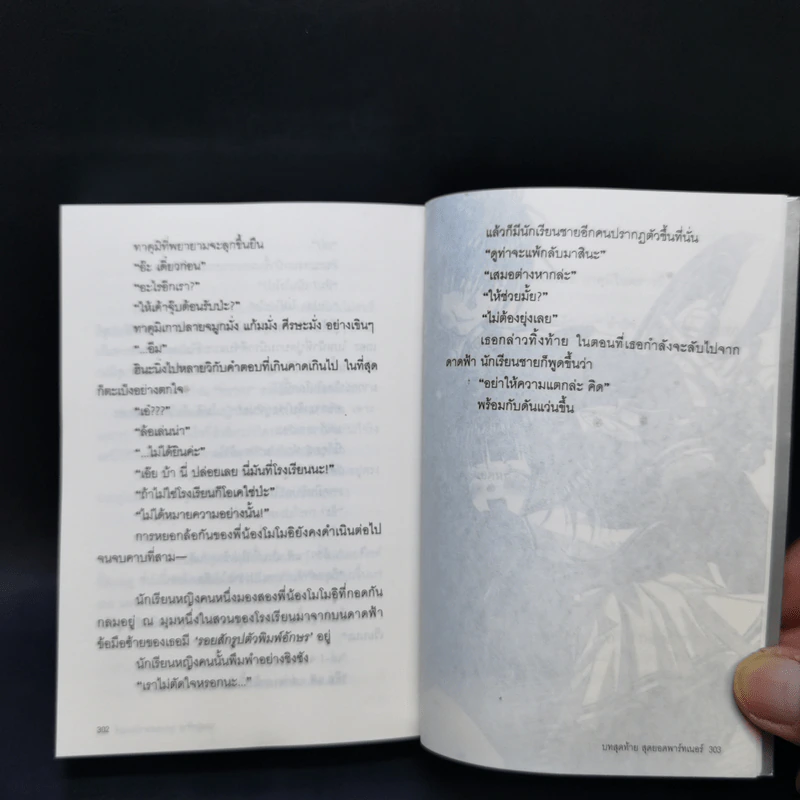 ทาคูมิที่พยายามจะลุกขึ้นยืน
“อ๊ะ เดี๋ยวก่อน”
“อะไรอีกเรา?”
“ให้เค้าจุ๊บต้อนรับป่ะ?”
ทาคูมิเกาปลายจมูกมั่ง แก้มมั่ง ศีรษะมั่ง อย่างเขินๆ
“...อืม”
ฮินะนิ่งไปหลายวิกับคำตอบที่เกินคาดเกินไป ในที่สุด
ก็ตะเบ็งอย่างตกใจ
“เอ๋???”
“ล้อเล่นน่า”
“...ไม่ได้ยินค่ะ”
“เอ๊ย บ้า นี่ ปล่อยเลย นี่มันที่โรงเรียนนะ!”
“ถ้าไม่ใช่โรงเรียนก็โอเคใช่ป่ะ”
“ไม่ได้หมายความอย่างนั้น!”
การหยอกล้อกันของพี่น้องโมโมอิยังคงดำเนินต่อไป
จนจบคาบที่สาม—
นักเรียนหญิงคนหนึ่งมองสองพี่น้องโมโมอิที่กอดกัน
กลมอยู่ ณ มุมหนึ่งในสวนของโรงเรียนมาจากบนดาดฟ้า
ข้อมือซ้ายของเธอมี ‘รอยสักรูปตัวพิมพ์อักษร’ อยู่
นักเรียนหญิงคนนั้นพึมพำอย่างชิงชัง
“เราไม่ตัดใจหรอกนะ...”
302
แล้วก็มีนักเรียนชายอีกคนปรากฏตัวขึ้นที่นั่น
“ดูท่าจะแพ้กลับมาสินะ”
“เสมอต่างหากล่ะ”
“ให้ช่วยมั้ย?”
“ไม่ต้องยุ่งเลย”
เธอกล่าวทิ้งท้าย ในตอนที่เธอกำลังจะลับไปจาก
ดาดฟ้า นักเรียนชายก็พูดขึ้นว่า
“อย่าให้ความแตกล่ะ คิด”
พร้อมกับดันแว่นขึ้น
บทสุดท้าย สุดยอดพาร์ทเนอร์ 303